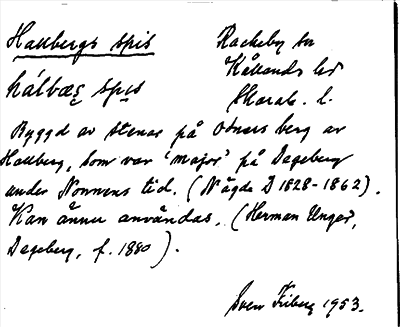 Hallbergs spis
Rackeby sn
Kållands hd
Skarab. l.
hálbæs spis
Byggd av stenar på berg av
Hallberg, som var "major" på Dageberg
under Nonnens tid. (N ägde D 1828-1862).
Kan ännu användas. (Herman Unger,
Dageberg, f. 1880).
Sven Friberg 1953.